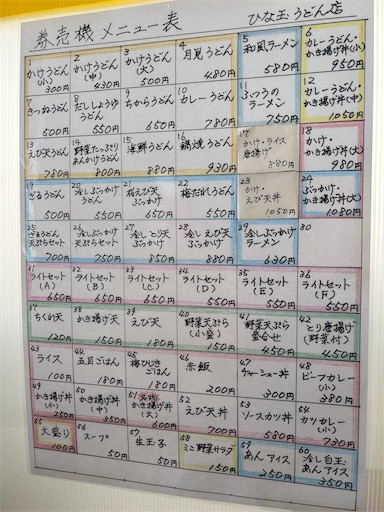 券売機メニュー表
ひな玉うどん店
1
かけうどん
(小)
300
2
かけうどん
(中)
430
3
かけうどん
(大)
500
4
月見うどん
480
5
和風ラーメン
580
6
カレーうどん・
かき揚げ丼(小)
950
7
きつねうどん
500
8
だししょうゆ
うどん
550
9
ちからうどん
650
10
カレーうどん
780
11
ふつうの
ラーメン
750
12
カレーうどん・
かき揚げ丼(中)
1050
13
えび天うどん
580
14
野菜たっぷり
あんかけうどん
880
15
海鮮うどん
880
16
鍋焼うどん
930
17
かけ・ライス
唐揚げ
880
18
かけ・
かき揚げ丼(大)
980
19
ざるうどん
500
20
冷しぶっかけ
うどん
550
21
梅えび天
ぶっかけ
650
22
梅だれうどん
550
23
かけ・
えび天丼
1050
24
ぶっかけ・
かき揚げ丼(大)
1080
25
ざるうどん
天ぷらセット
700
26
冷しぶっかけ
天ぷらセット
750
27
冷しとり天
ぶっかけ
750
28
冷しえび天
ぶっかけ
29
冷しぶっかけ
ラーメン
630
30
31
ライトセット
(A)
650
32
ライトセット
(B)
650
33
ライトセット
(C)
650
34
ライトセット
(D)
550
35
ライトセット
(E)
550
36
ライトセット
(F)
550
37
ちく的天
120
38
かき揚げ天
150
39
えび天
180
40
野菜天ぷら
(小盛)
200
41
野菜天ぷら
盛合せ
450
42
とり唐揚げ
(野菜付)
450
43
ライス
100
44
五目ごはん
180
45
梅ひじき
ごはん
180
46
赤飯
200
47
チャーシュー丼
300
48
ビーフカレー
(小)
380
49
かき揚げ丼
(小)
250
50
かき揚げ丼
(中)
350
51
かき揚げ丼
(大)
52
えび天丼
700
53
ソースカツ丼
580
54
カツカレー
(小)
730
55
大盛り
100
56
スープ
50
57
生玉子
50
58
ミニ野菜サラダ
150
59
あんアイス
250
60
冷し白玉
あんアイス
350